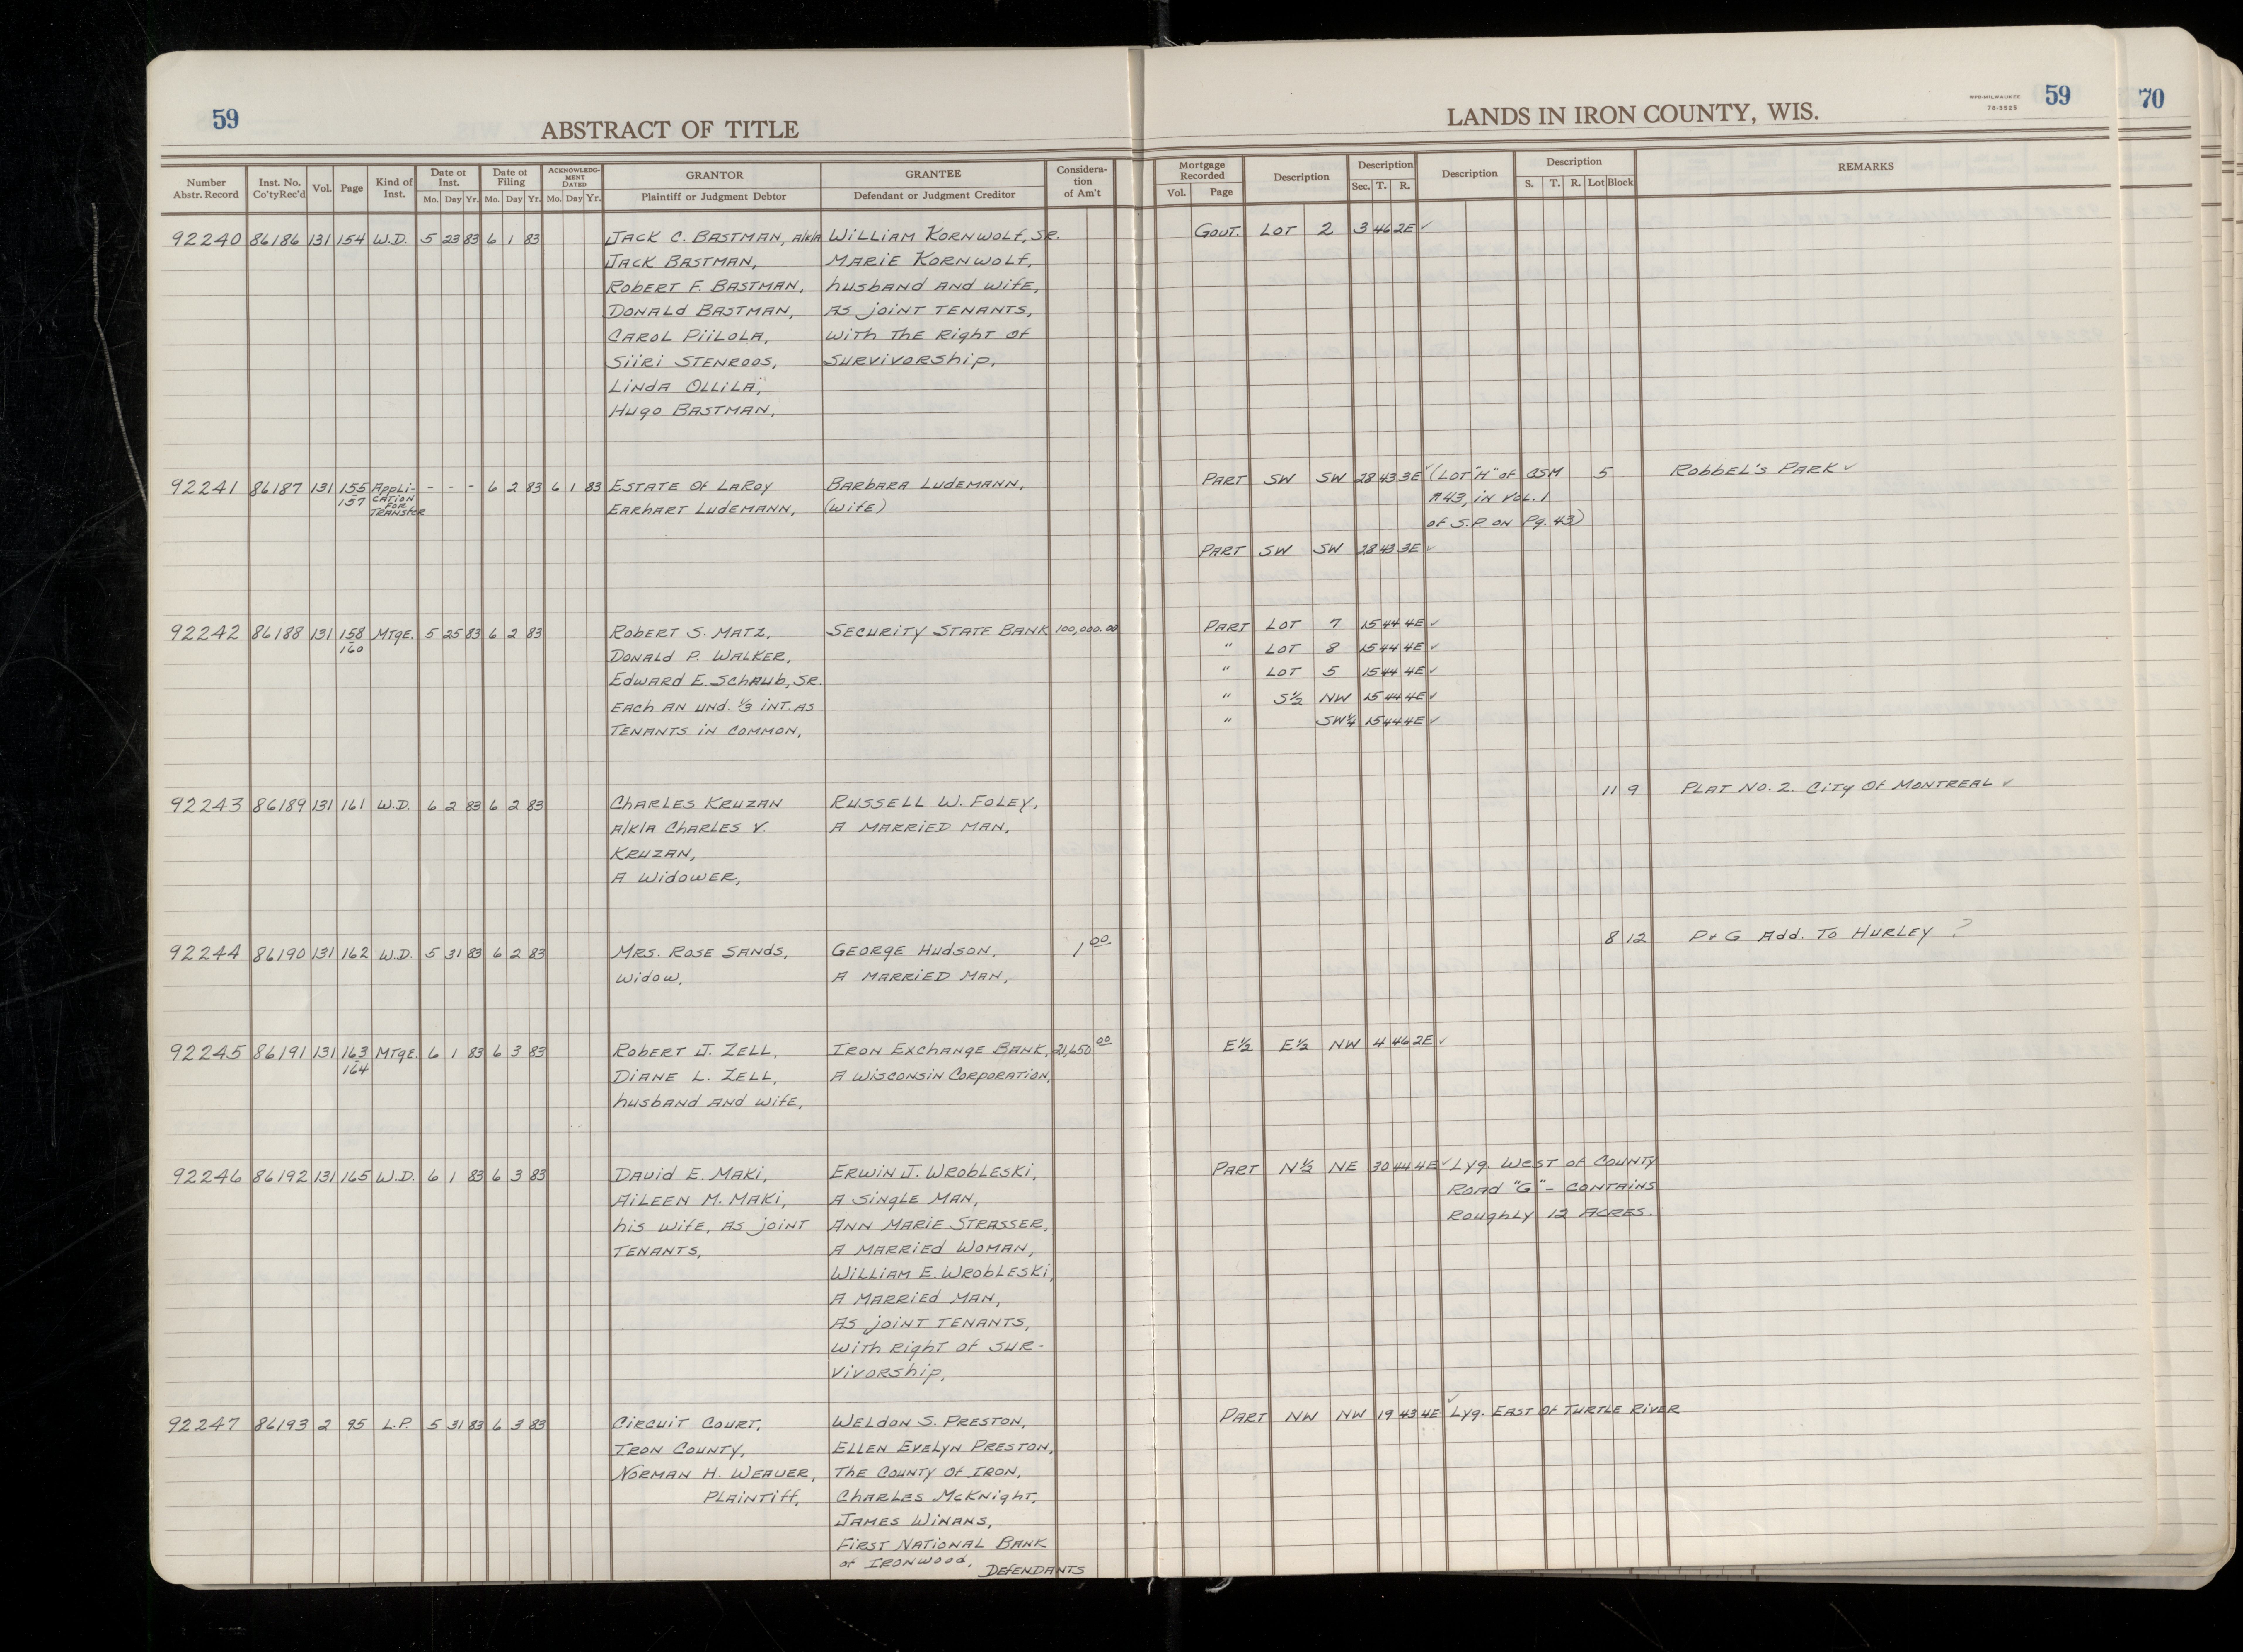 59
ABSTRACT OF TITLE
LANDS IN IRON COUNTY, WIS.
NPB-MILWAUKEE
78-3525
59
70
Number Abstr. Record | Inst. No. Co'ty Rec'd | Vol. | Page | Kind of Inst. | Date of Inst. Mo. Day Yr. | Date of Filing Mo. Day Yr. | ACKNOWLEDG-MENT DATED Mo. Day Yr. | GRANTOR Plaintiff or Judgment Debtor | GRANTEE Defendant or Judgment Creditor | Considera-tion of Am't | Mortgage Recorded Vol. Page | Description | Description Sec. T. R. | Description | Description S. T. R. Lot Block | REMARKS
92240 86186 131 154 W.D. 5 23 83 6 1 83 JACK C. BASTMAN, A/K/A WILLIAM KORNWOLF, SR. GOUT. LOT 2 3 46 2E ✓
JACK BASTMAN, MARIE KORNWOLF,
ROBERT F. BASTMAN, husband AND wife,
DONALD BASTMAN, AS joint TENANTS,
CAROL PiiLOLA, with The Right of
SiiRi STENROOS, SURVIVORship,
LINDA OLLILA,
HUGO BASTMAN,
92241 86187 131 155-157 APPLI-CATION FOR TRANSFER - - - 6 2 83 6 1 83 ESTATE Of LAROY BARBARA LUDEMANN, PART SW SW 28 43 3E ✓ (LOT "H" of CSM 5 ROBBEL'S PARK ✓
EARHART LUDEMANN, (wife) #43, in VOL. 1
of S.P. ON Pg. 43)
PART SW SW 28 43 3E ✓
92242 86188 131 158-160 MTGE. 5 25 83 6 2 83 ROBERT S. MATZ, SECURITY STATE BANK 100,000.00 PART LOT 7 15 44 4E ✓
DONALD P. WALKER, " LOT 8 15 44 4E ✓
EDWARD E. SCHAUB, SR. " LOT 5 15 44 4E ✓
EACH AN UND. 1/3 INT. AS " S½ NW 15 44 4E ✓
TENANTS IN COMMON, " SW¼ 15 44 4E ✓
92243 86189 131 161 W.D. 6 2 83 6 2 83 CHARLES KRUZAN RUSSELL W. FOLEY, 11 9 PLAT NO. 2. CITY Of MONTREAL ✓
A/K/A CHARLES V. A MARRIED MAN,
KRUZAN,
A WIDOWER,
92244 86190 131 162 W.D. 5 31 83 6 2 83 MRS. ROSE SANDS, GEORGE HUDSON, 1.00 8 12 P+G Add. To HURLEY ?
Widow, A MARRIED MAN,
92245 86191 131 163-164 MTGE. 6 1 83 6 3 83 ROBERT J. ZELL, IRON EXCHANGE BANK, 21,650.00 E½ E½ NW 4 46 2E ✓
DIANE L. ZELL, A WISCONSIN CORPORATION,
husband AND wife,
92246 86192 131 165 W.D. 6 1 83 6 3 83 DAVID E. MAKI, ERWIN J. WROBLESKI, PART N½ NE 30 44 4E ✓ Lyg. WEST of COUNTY
AILEEN M. MAKI, A Single MAN, ROAD "G" - CONTAINS
his wife, AS joint ANN MARIE STRASSER, ROUGHLY 12 ACRES.
TENANTS, A MARRIED WOMAN,
WILLIAM E. WROBLESKI,
A MARRIED MAN,
AS joint TENANTS,
with Right of SUR-
VIVORship,
92247 86193 2 95 L.P. 5 31 83 6 3 83 CIRCUIT COURT, WELDON S. PRESTON, PART NW NW 19 43 4E ✓ Lyg. EAST Of TURTLE RIVER
IRON COUNTY, ELLEN EVELYN PRESTON,
NORMAN H. WEAVER, The COUNTY Of IRON,
PLAINTIFF, CHARLES McKNIGHT,
JAMES WINANS,
FIRST NATIONAL BANK
of IRONWOOD, DEFENDANTS